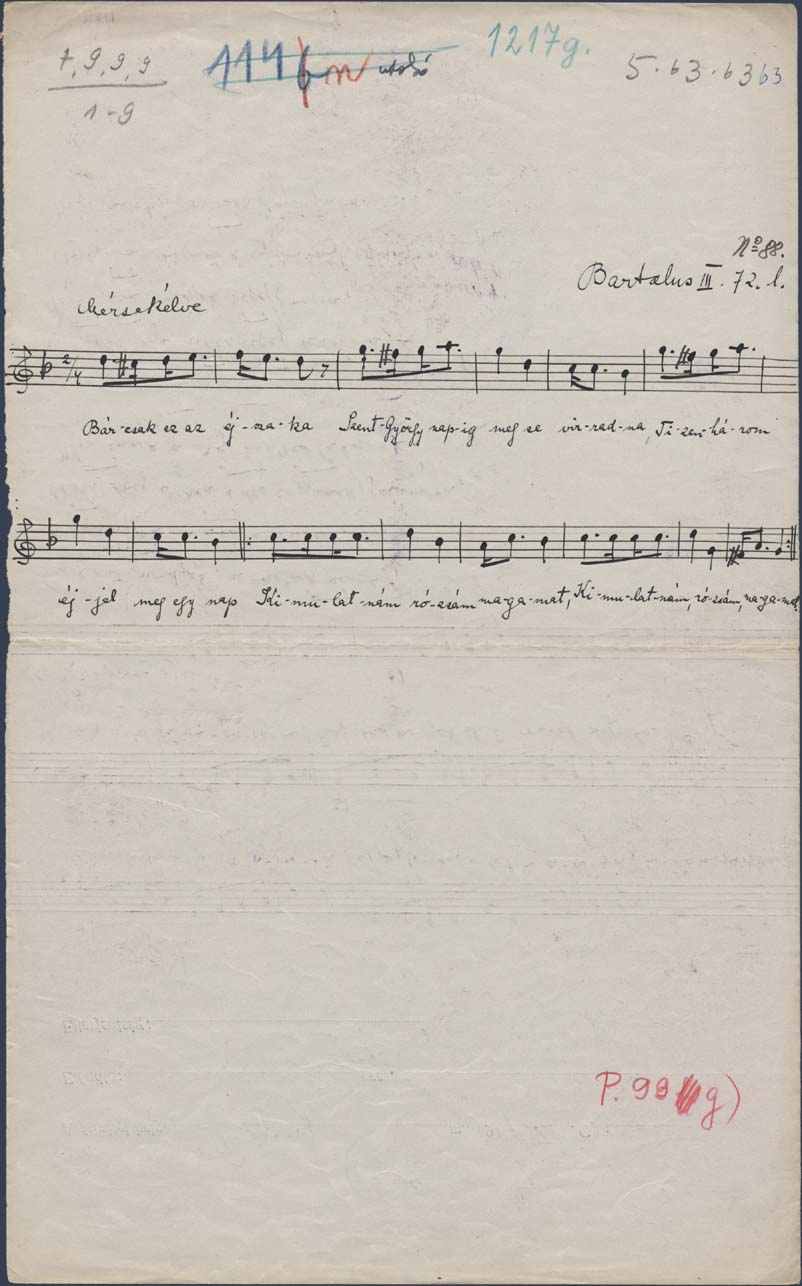 7, 9, 9, 9
1-9
utolsó
1217g.
5.63.6363
No 88.
Bartalus III. 72. l.
Mérsékelve
2/4
Bár-csak ez az éj-sza-ka Szent-György nap-ig meg se vir-rad-na, Ti-zen-há-rom
éj-jel meg egy nap Ki-mu-lat-nám ró-zsám ma-ga-mat, Ki-mu-lat-nám, ró-zsám, ma-ga-mat.
P. 99 g)